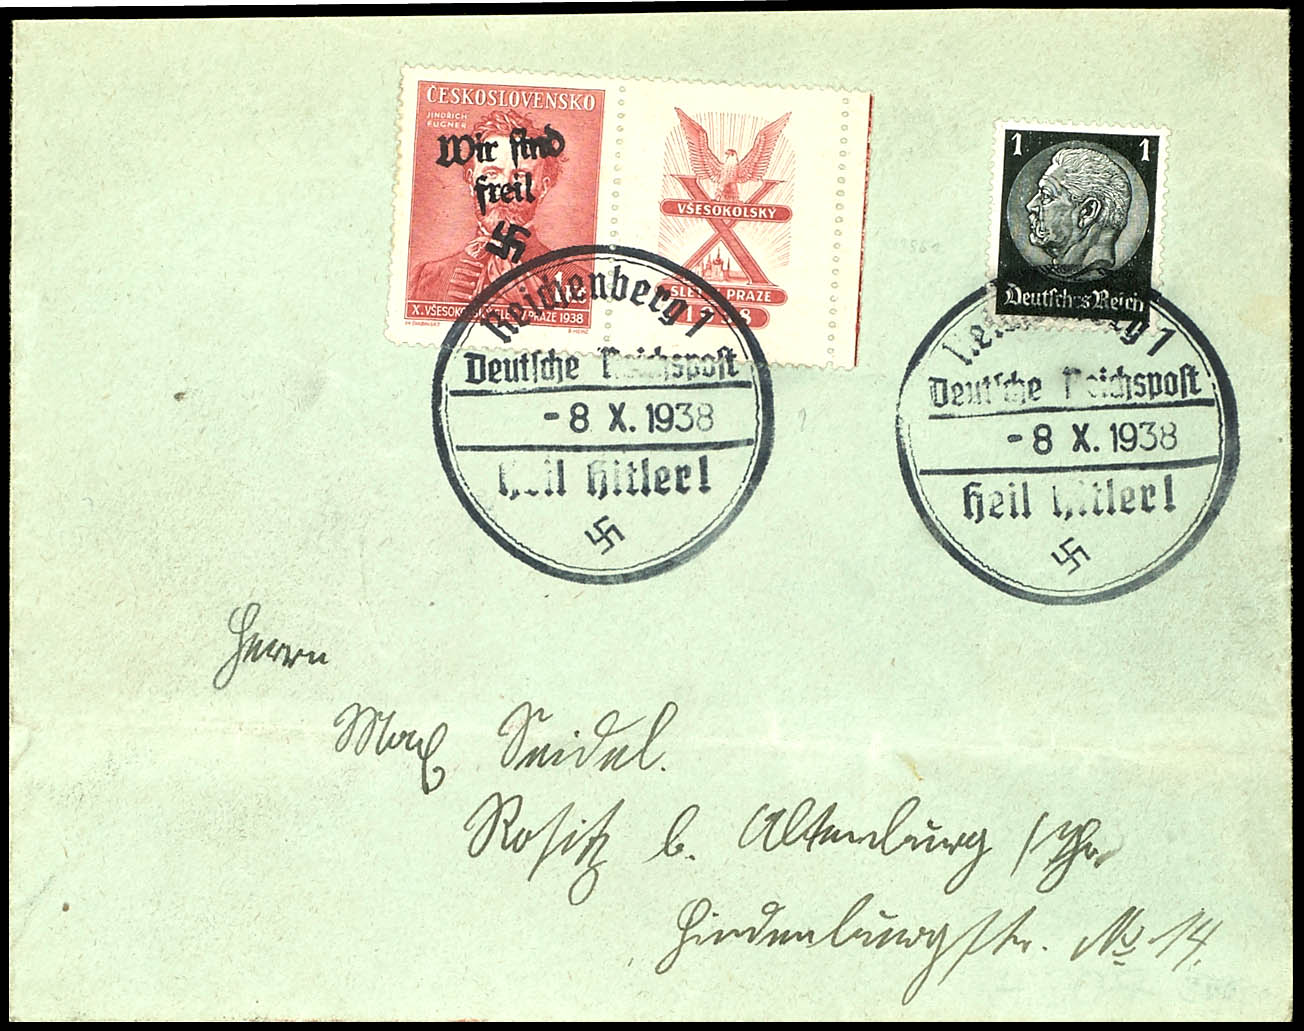 ČESKOSLOVENSKO
JINDŘICH
FÜGNER
Wir sind
frei!
X. VŠESOKOLSKÝ SLET V PRAZE 1938
VŠESOKOLSKÝ
X
SLET V PRAZE
1938
1 1
Deutsches Reich
Reichenberg 1
Deutsche Reichspost
-8 X. 1938
Heil Hitler!
Reichenberg 1
Deutsche Reichspost
-8 X. 1938
Heil Hitler!
Herrn
Max Seidel.
Rositz b. Altenburg / Thr.
Hindenburgstr. No 14.